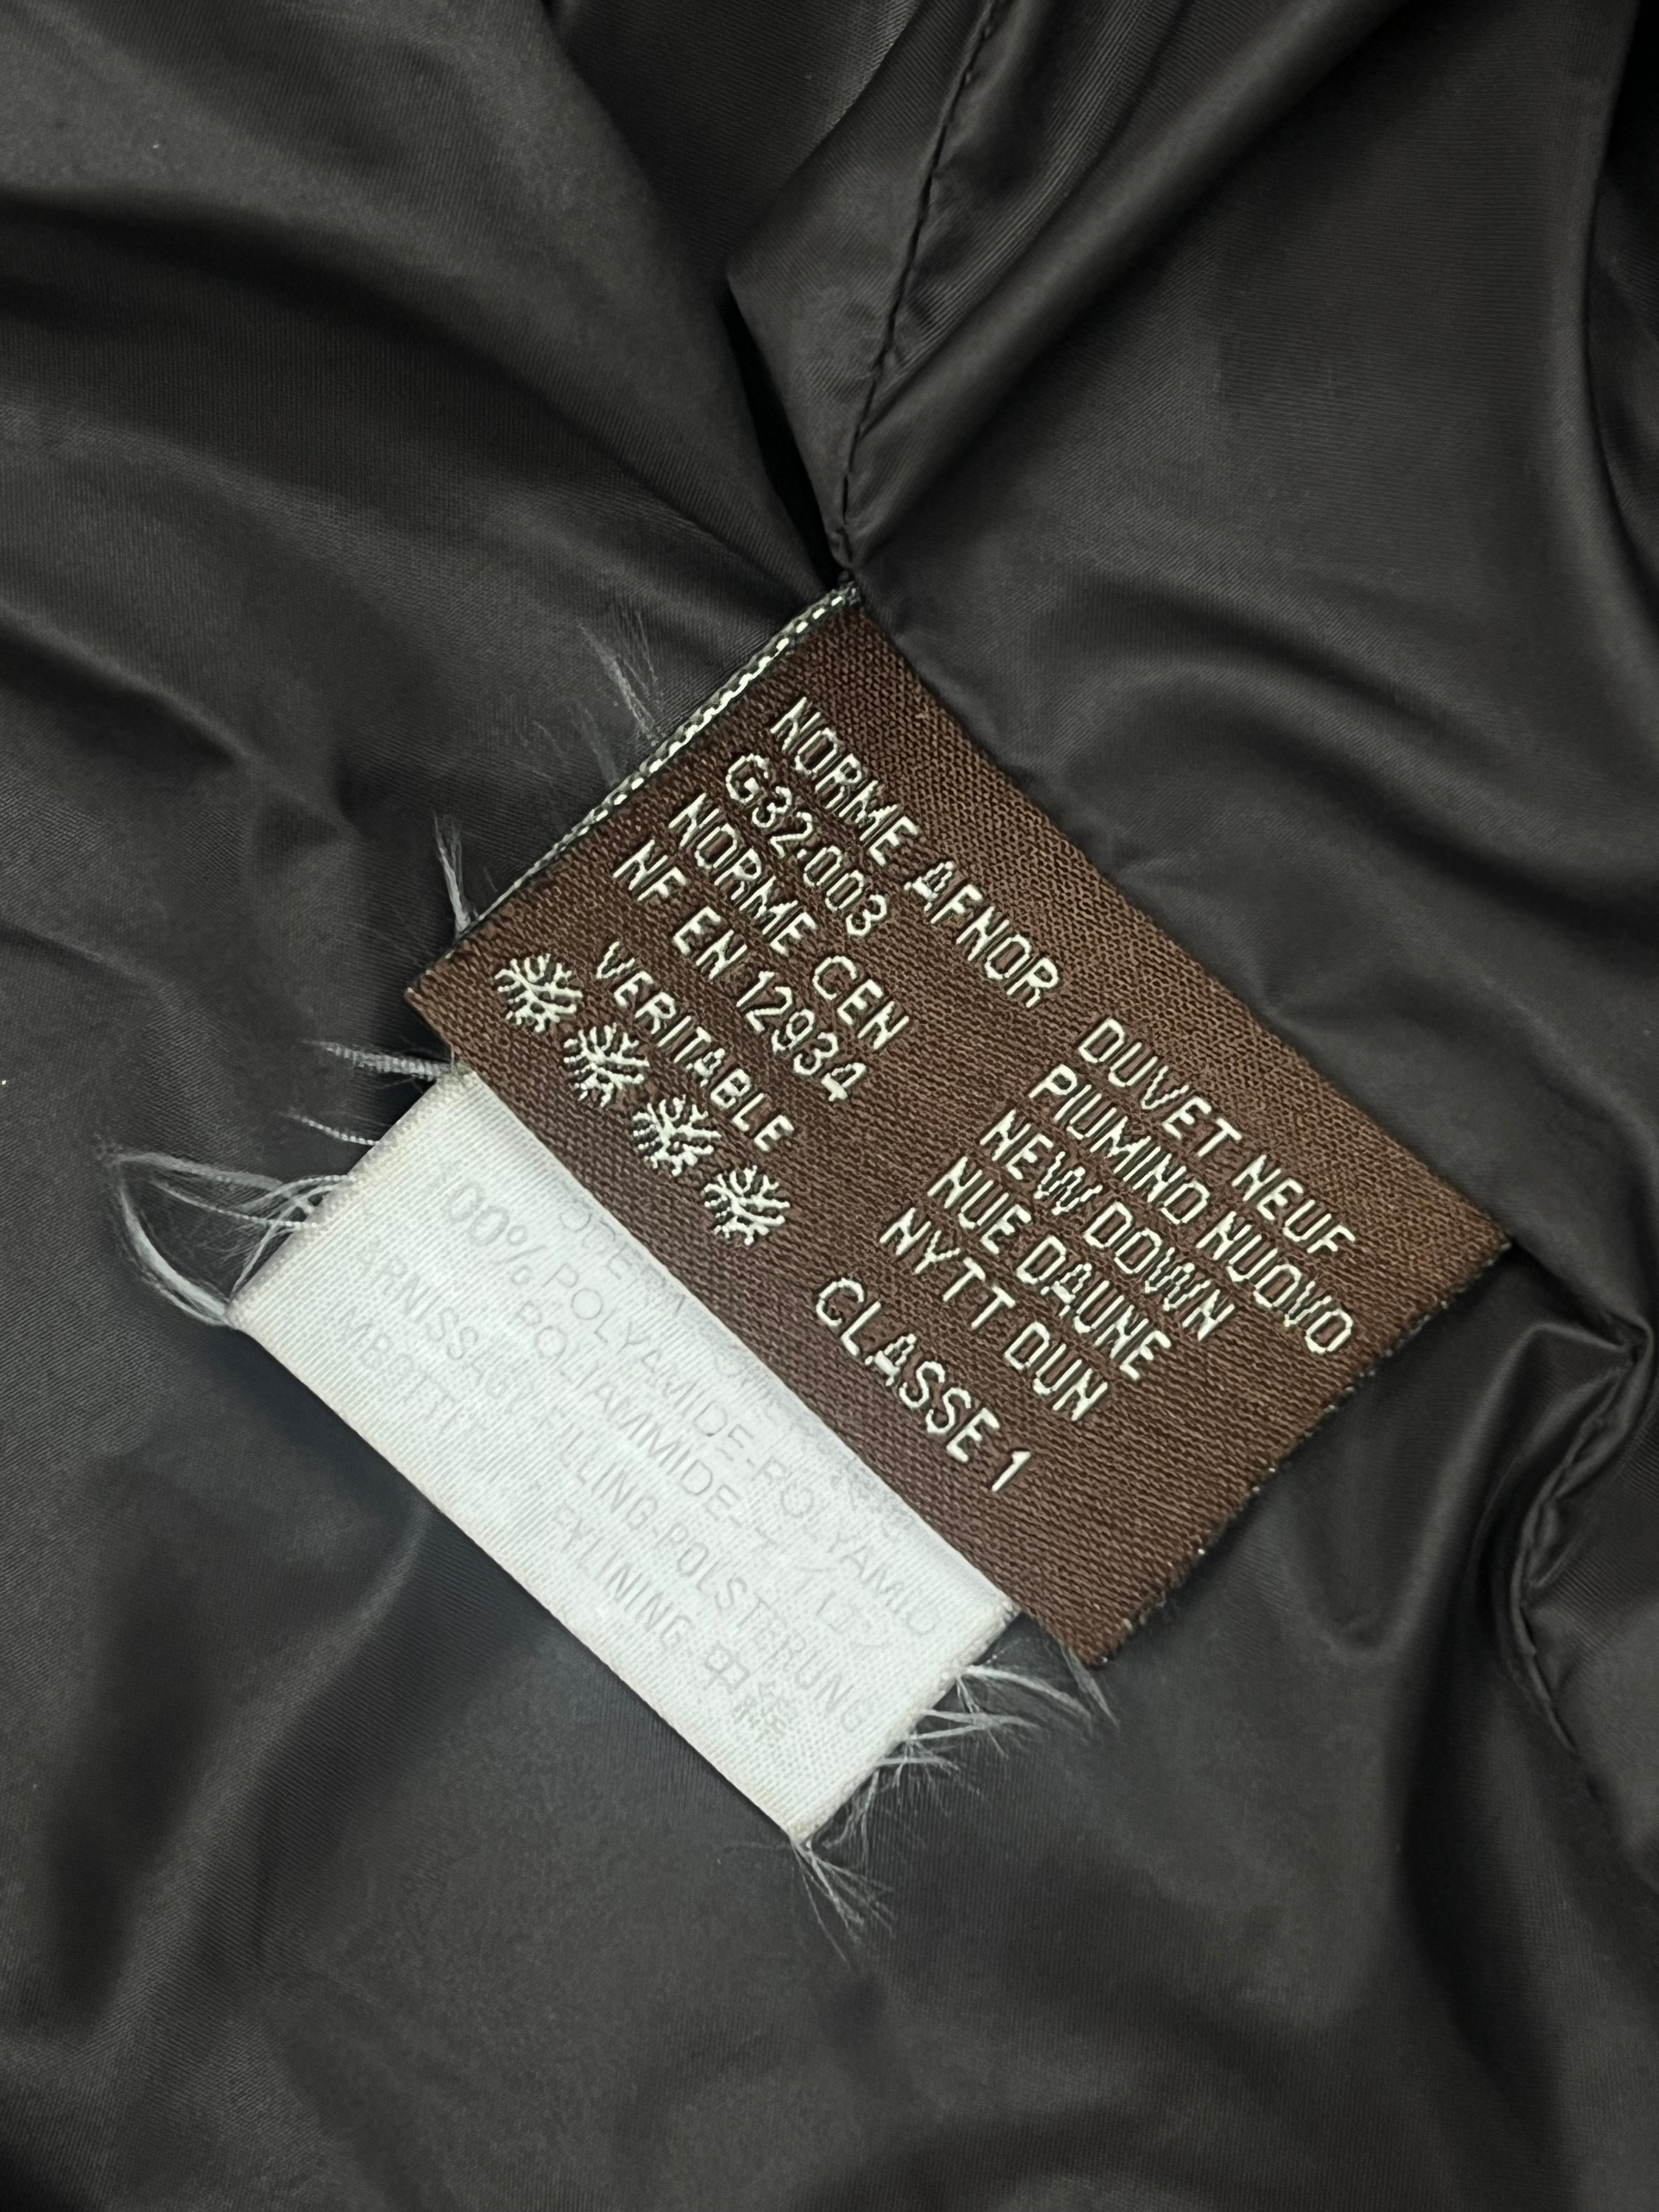 NORME AFNOR
G32.003
NORME CEN
NF EN 12934
VERITABLE
DUVET NEUF
PIUMINO NUOVO
NEW DOWN
NUE DAUNE
NYTT DUN
CLASSE 1
100% POLYAMIDE-POLYAMID
POLIAMMIDE-
FILLING-POLSTERUNG
中綿